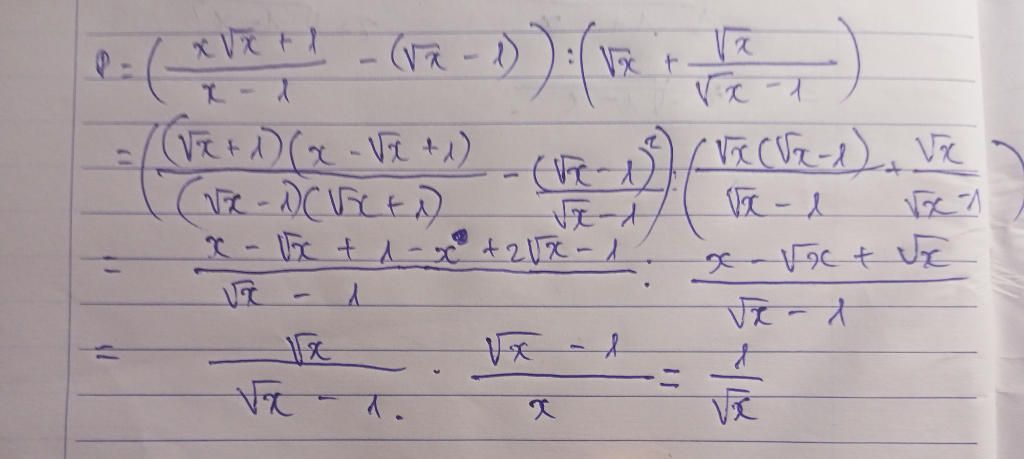 P = ( (x√x + 1)/(x - 1) - (√x - 1) ) : ( √x + √x/(√x - 1) )
= ( ((√x + 1)(x - √x + 1))/((√x - 1)(√x + 1)) - (√x - 1)²/(√x - 1) ) : ( (√x(√x - 1))/(√x - 1) + √x/(√x - 1) )
= (x - √x + 1 - x + 2√x - 1)/(√x - 1) : (x - √x + √x)/(√x - 1)
= √x/(√x - 1) . (√x - 1)/x = 1/√x